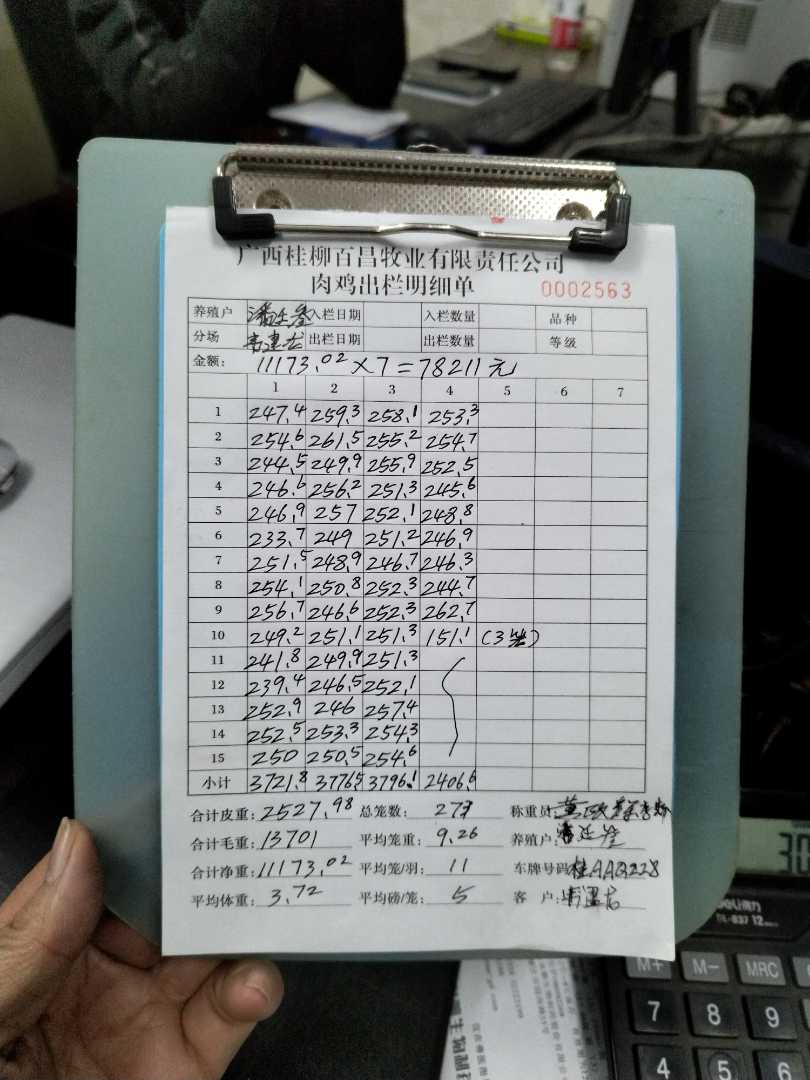 广西桂柳百昌牧业有限责任公司
肉鸡出栏明细单 0002563
养殖户 入栏日期 入栏数量 品种
分场 出栏日期 出栏数量 等级
金额: 11173.02×7=78211元
1 2 3 4 5 6 7
1 247.4 259.3 258.1 253.3
2 254.6 261.5 255.2 254.7
3 244.5 249.9 255.9 252.5
4 246.6 256.2 251.3 245.6
5 246.9 257 252.1 248.8
6 233.7 249 251.2 246.9
7 251.5 248.9 246.7 246.3
8 254.1 250.8 252.3 244.7
9 256.7 246.6 252.3 262.7
10 249.2 251.1 251.3 151.1 (3米)
11 241.8 249.9 251.3
12 239.4 246.5 252.1
13 252.9 246 257.4
14 252.5 253.3 254.3
15 250 250.5 254.6
小计 3721.8 3776.5 3796.1 2406.6
合计皮重: 2527.98 总笼数: 273 称重员:
合计毛重: 13701 平均笼重: 9.26 养殖户:
合计净重: 11173.02 平均笼/羽: 11 车牌号码: 桂AAQ228
平均体重: 3.72 平均磅/笼: 5 客户:
30
M+ M− MRC
7 8 9
4 5 6